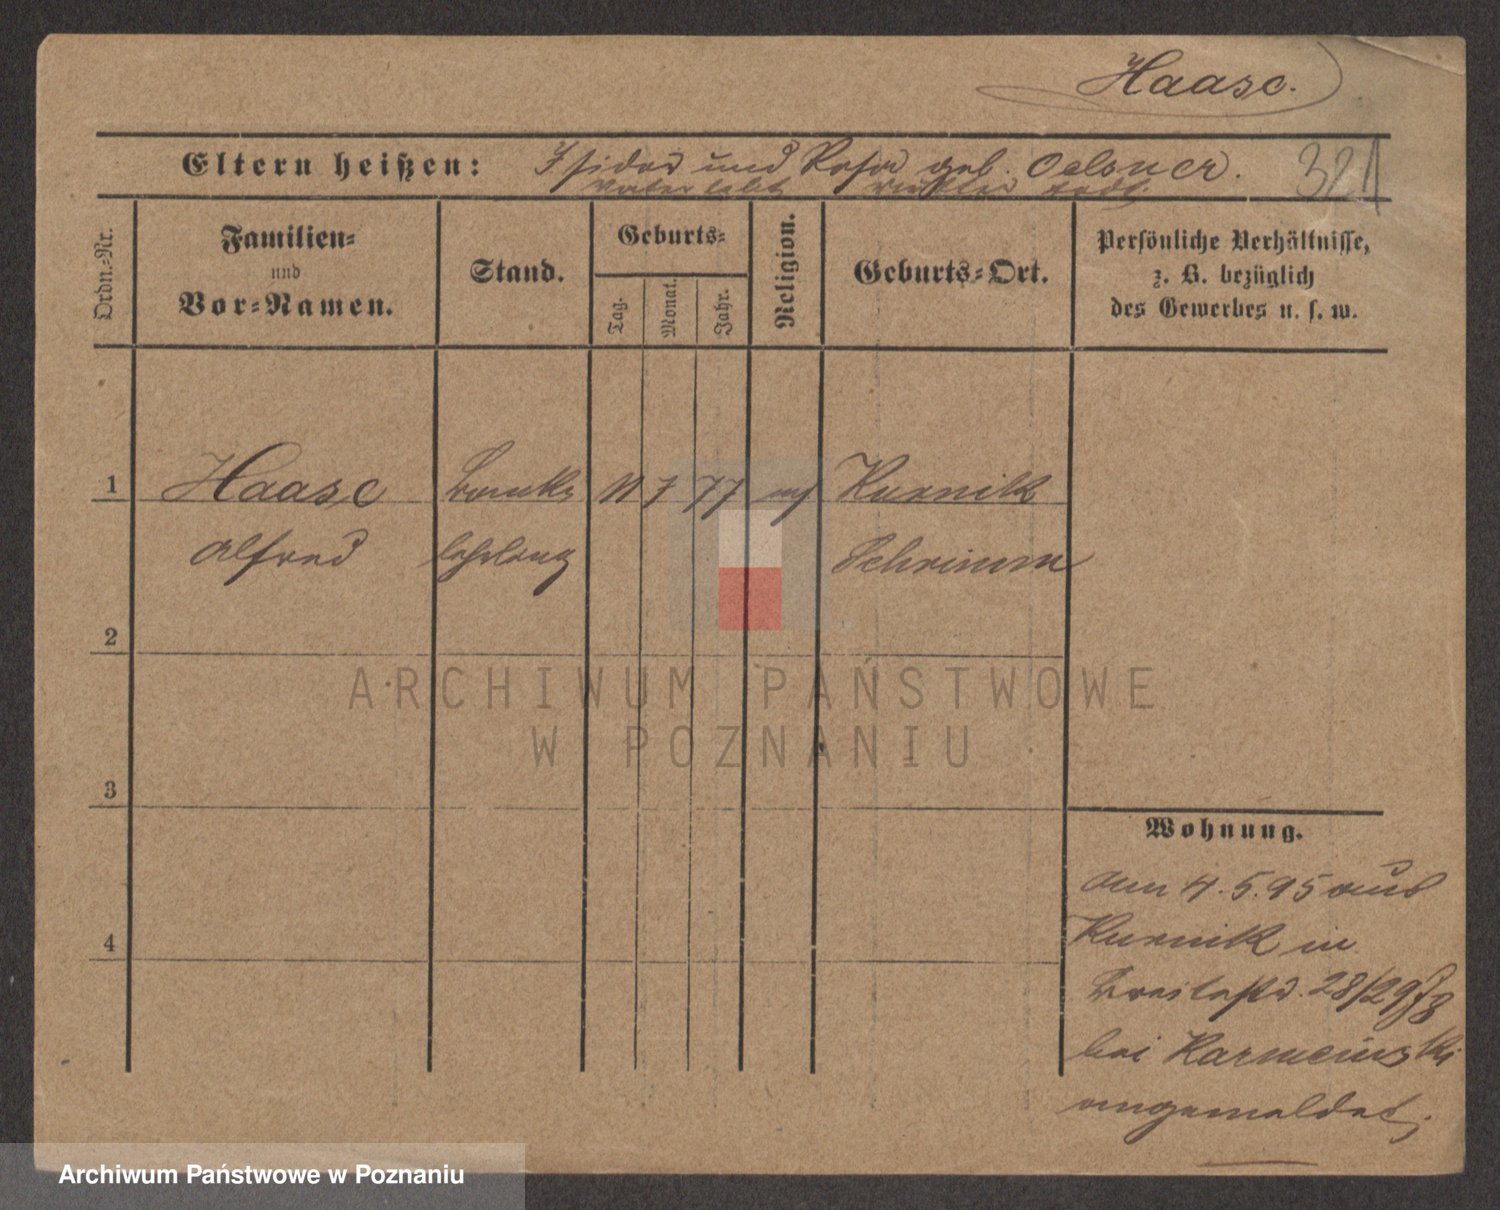 Haase.
Eltern heißen: Isidor und Rosa geb. Oelsner.
Vater lebt Mutter todt
321
Ordn.-Nr.
Familien-
und
Vor-Namen.
Stand.
Geburts-
Tag.
Monat.
Jahr.
Religion.
Geburts-Ort.
Persönliche Verhältnisse,
z. B. bezüglich
des Gewerbes u. s. w.
1 Haase 11 7 77 Kurnik
Alfred lehrling Schrimm
2
3
4
Wohnung.
am 4.5.95 aus
Kurnik in
28/29
bei Karminski
angemeldet.
ARCHIWUM PAŃSTWOWE
W POZNANIU
Archiwum Państwowe w Poznaniu